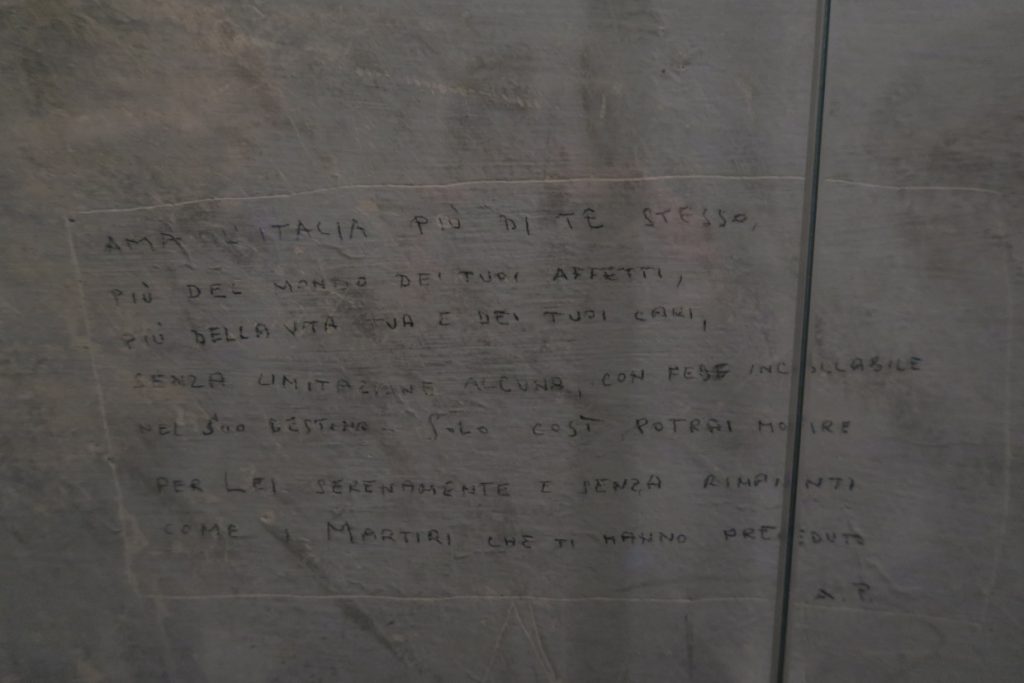 AMA L'ITALIA PIÙ DI TE STESSO,
PIÙ DEL MONDO DEI TUOI AFFETTI,
PIÙ DELLA VITA TUA E DEI TUOI CARI,
SENZA LIMITAZIONE ALCUNA, CON FEDE INCROLLABILE
NEL SUO DESTINO. SOLO COSÌ POTRAI MORIRE
PER LEI SERENAMENTE E SENZA RIMPIANTI
COME I MARTIRI CHE TI HANNO PRECEDUTO
A. P.